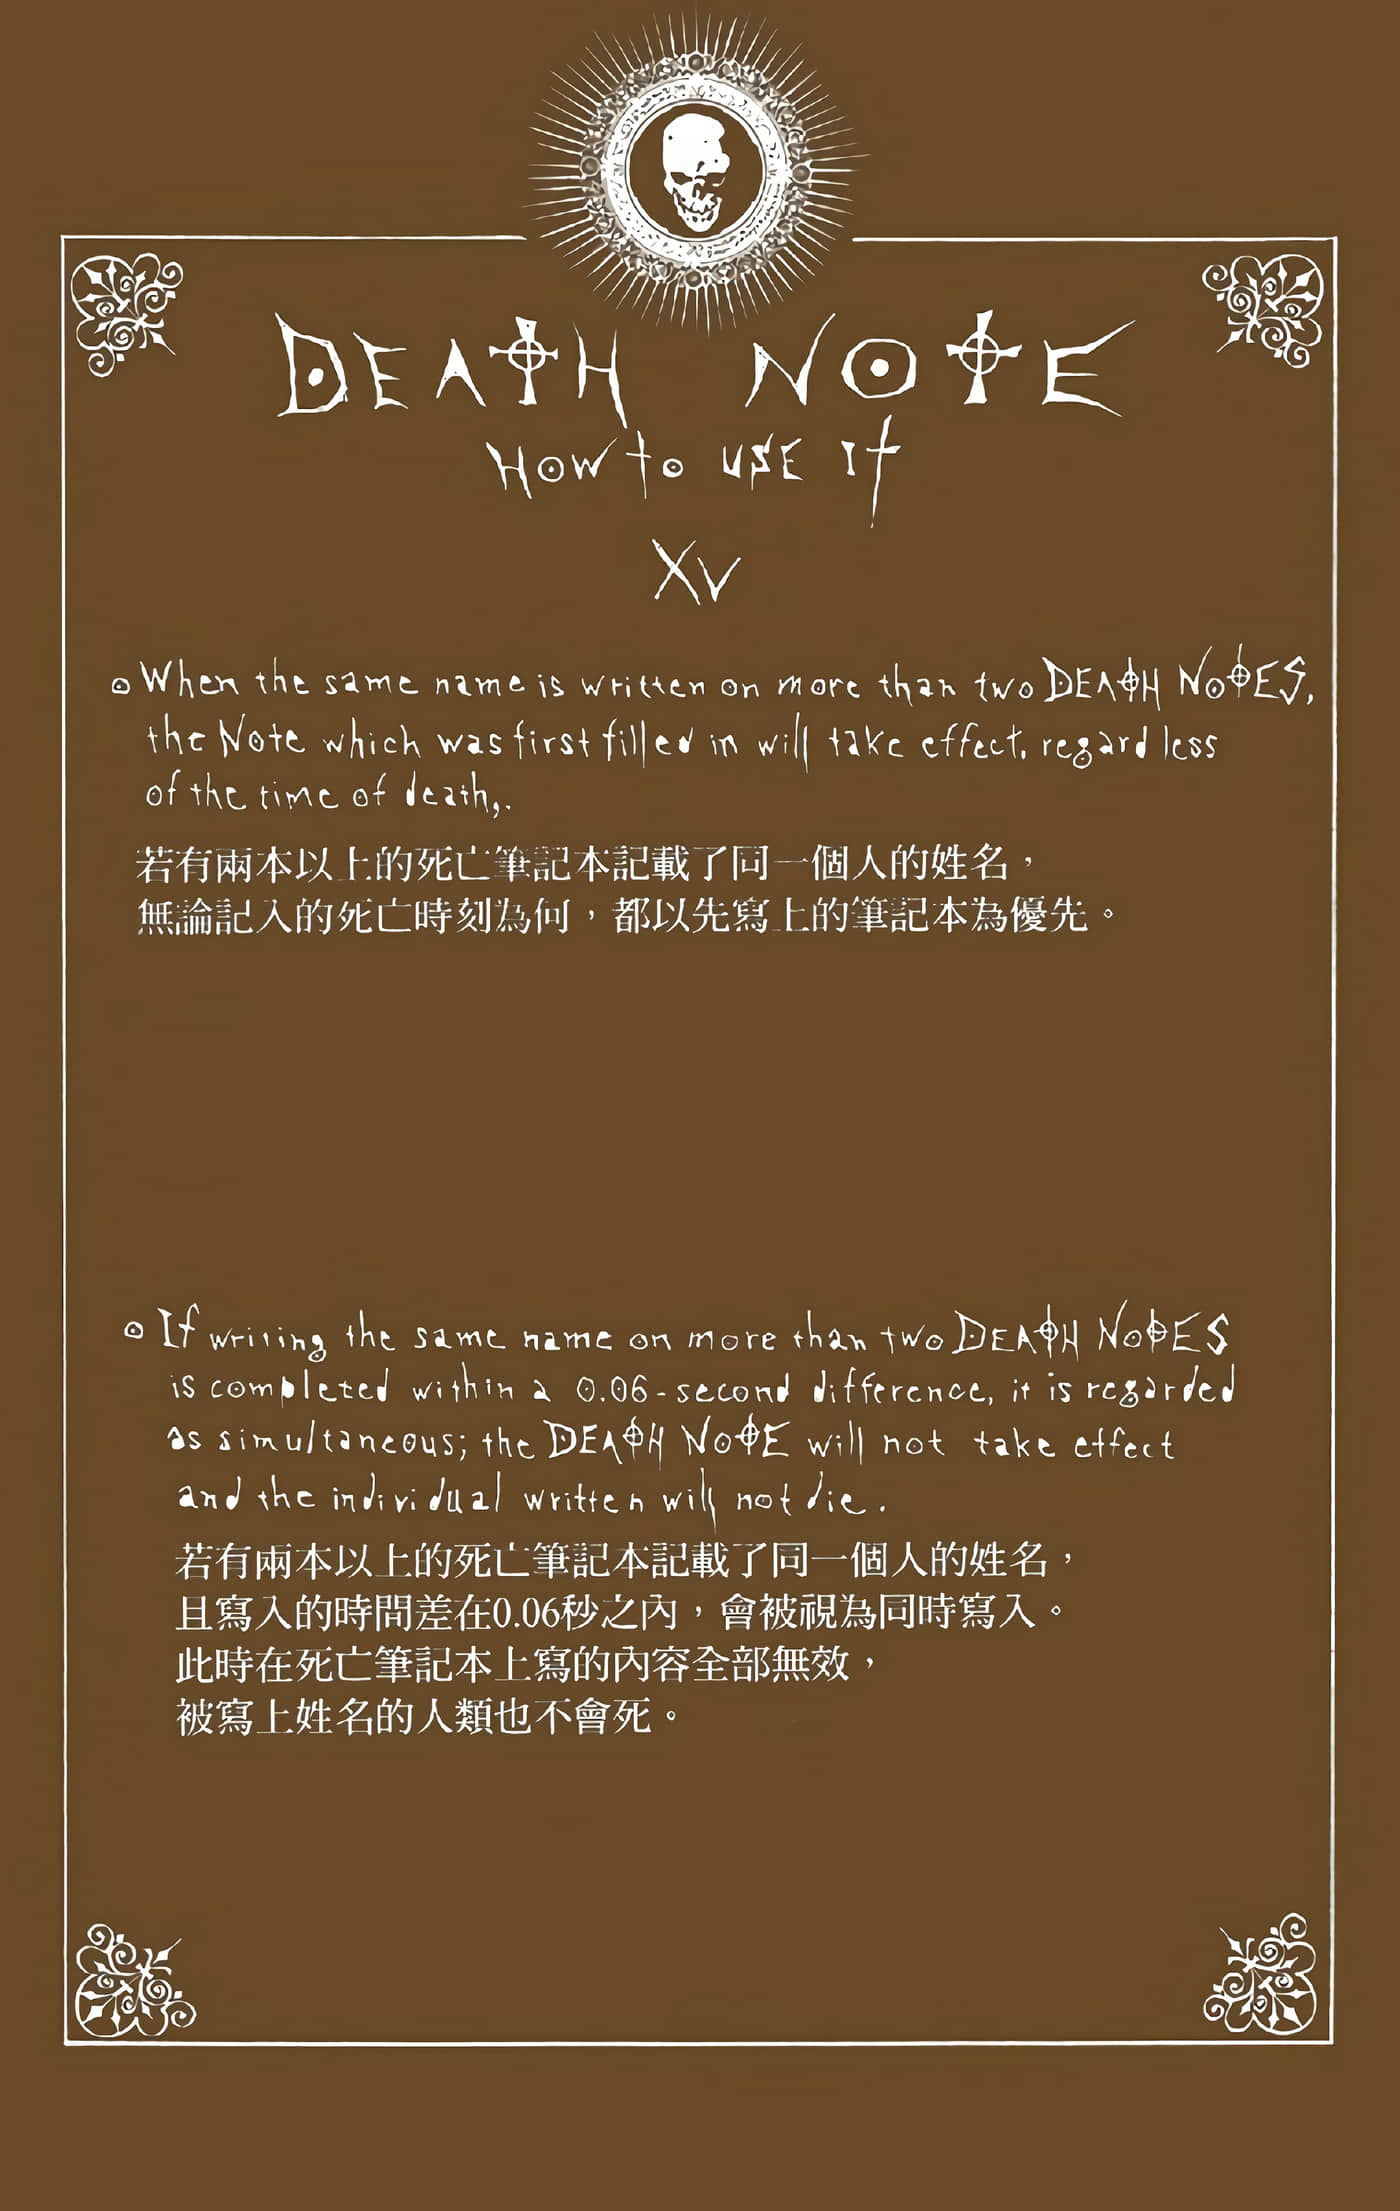 DEATH NOTE
HOW to USE It
XV
When the same name is written on more than two DEATH NOTES,
the Note which was first filled in will take effect, regardless
of the time of death,.
若有兩本以上的死亡筆記本記載了同一個人的姓名，
無論記入的死亡時刻為何，都以先寫上的筆記本為優先。
If writing the same name on more than two DEATH NOTES
is completed within a 0.06-second difference, it is regarded
as simultaneous; the DEATH NOTE will not take effect
and the individual written will not die.
若有兩本以上的死亡筆記本記載了同一個人的姓名，
且寫入的時間差在0.06秒之內，會被視為同時寫入。
此時在死亡筆記本上寫的內容全部無效，
被寫上姓名的人類也不會死。